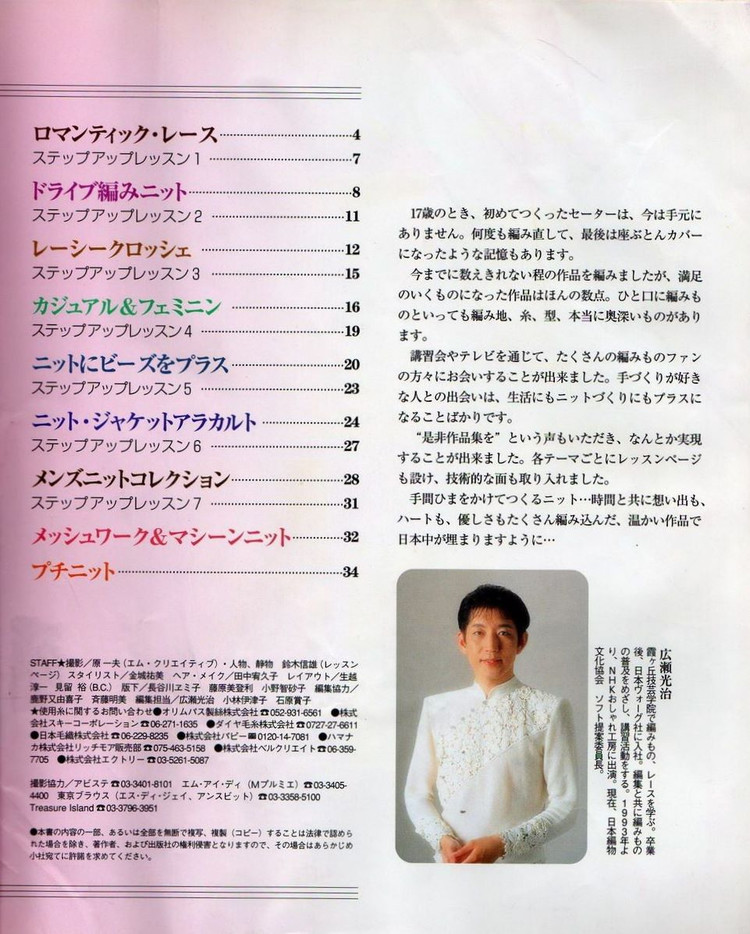 ロマンティック・レース 4
ステップアップレッスン1 7
ドライブ編みニット 8
ステップアップレッスン2 11
レーシークロッシェ 12
ステップアップレッスン3 15
カジュアル&フェミニン 16
ステップアップレッスン4 19
ニットにビーズをプラス 20
ステップアップレッスン5 23
ニット・ジャケットアラカルト 24
ステップアップレッスン6 27
メンズニットコレクション 28
ステップアップレッスン7 31
メッシュワーク&マシーンニット 32
プチニット 34
STAFF★撮影/原 一夫(エム・クリエイティブ)・人物、静物 鈴木信雄(レッスン
ページ) スタイリスト/金城祐美 ヘア・メイク/田中宥久子 レイアウト/生越
淳一 見留 裕(B.C.) 版下/長谷川ヱミ子 藤原美登利 小野智砂子 編集協力/
鹿野又由喜子 斉藤明美 編集担当/広瀬光治 小林伊津子 石原賞子
★使用糸に関するお問い合わせ●オリムパス製絲株式会社☎052-931-6561 ●株式
会社スキーコーポレーション☎06-271-1635 ●ダイヤ毛糸株式会社☎0727-27-6611
●日本毛織株式会社☎06-229-8235 ●株式会社パピー☎0120-14-7081 ●ハマナ
カ株式会社リッチモア販売部☎075-463-5158 ●株式会社ベルクリエイト☎06-359-
7705 ●株式会社エクトリー☎03-5261-5087
撮影協力/アビステ☎03-3401-8101 エム・アイ・ディ(Mプルミエ)☎03-3405-
4400 東京ブラウス(エス・ディ・ジェイ、アンスピット)☎03-3358-5100
Treasure Island☎03-3796-3951
●本書の内容の一部、あるいは全部を無断で複写、複製(コピー)することは法律で認めら
れた場合を除き、著作者、および出版社の権利侵害となりますので、その場合はあらかじめ
小社宛てに許諾を求めてください。
17歳のとき、初めてつくったセーターは、今は手元に
ありません。何度も編み直して、最後は座ぶとんカバー
になったような記憶もあります。
今までに数えきれない程の作品を編みましたが、満足
のいくものになった作品はほんの数点。ひと口に編みも
のといっても編み地、糸、型、本当に奥深いものがあり
ます。
講習会やテレビを通じて、たくさんの編みものファン
の方々にお会いすることが出来ました。手づくりが好き
な人との出会いは、生活にもニットづくりにもプラスに
なることばかりです。
“是非作品集を”という声もいただき、なんとか実現
することが出来ました。各テーマごとにレッスンページ
も設け、技術的な面も取り入れました。
手間ひまをかけてつくるニット…時間と共に想い出も、
ハートも、優しさもたくさん編み込んだ、温かい作品で
日本中が埋まりますように…
広瀬光治
霞ヶ丘技芸学院で編みもの、レースを学ぶ。卒業
後、日本ヴォーグ社に入社。編集と共に編みもの
の普及をめざし、講習活動をする。1993年よ
り、NHKおしゃれ工房に出演。現在、日本編物
文化協会 ソフト提案委員長。